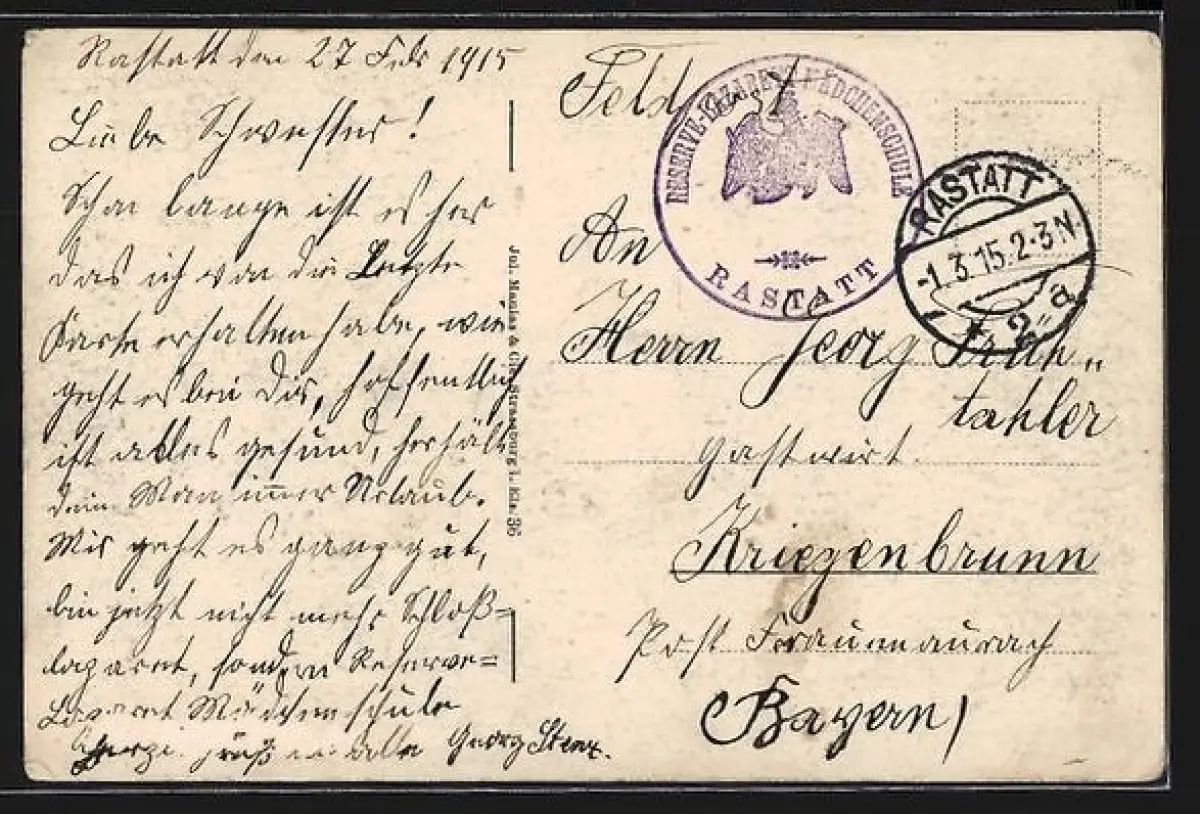 Rastatt den 27 Feb 1915
Liebe Schwester!
Schon lange ist es her
das ich von dir Letzte
Karte erhalten habe, wie
geht es bei dir, hoffentlich
ist alles gesund, herhält
dein Man immer Urlaub.
Mir geht es ganz gut,
bin jetzt nicht mehr Schloß=
lazarett, sondern Reserve=
Lazarett Mädchenschule
grüß alle Georg
Jol. Manias & Cie. Strassburg i. Els. 36
RESERVE-LAZARETT MÄDCHENSCHULE
RASTATT
RASTATT
-1.3.15.2-3N.
* 2 a
An
Herrn Georg Früh„
tahler
Gastwirt.
Kriegenbrunn
Post Frauenaurach
(Bayern)